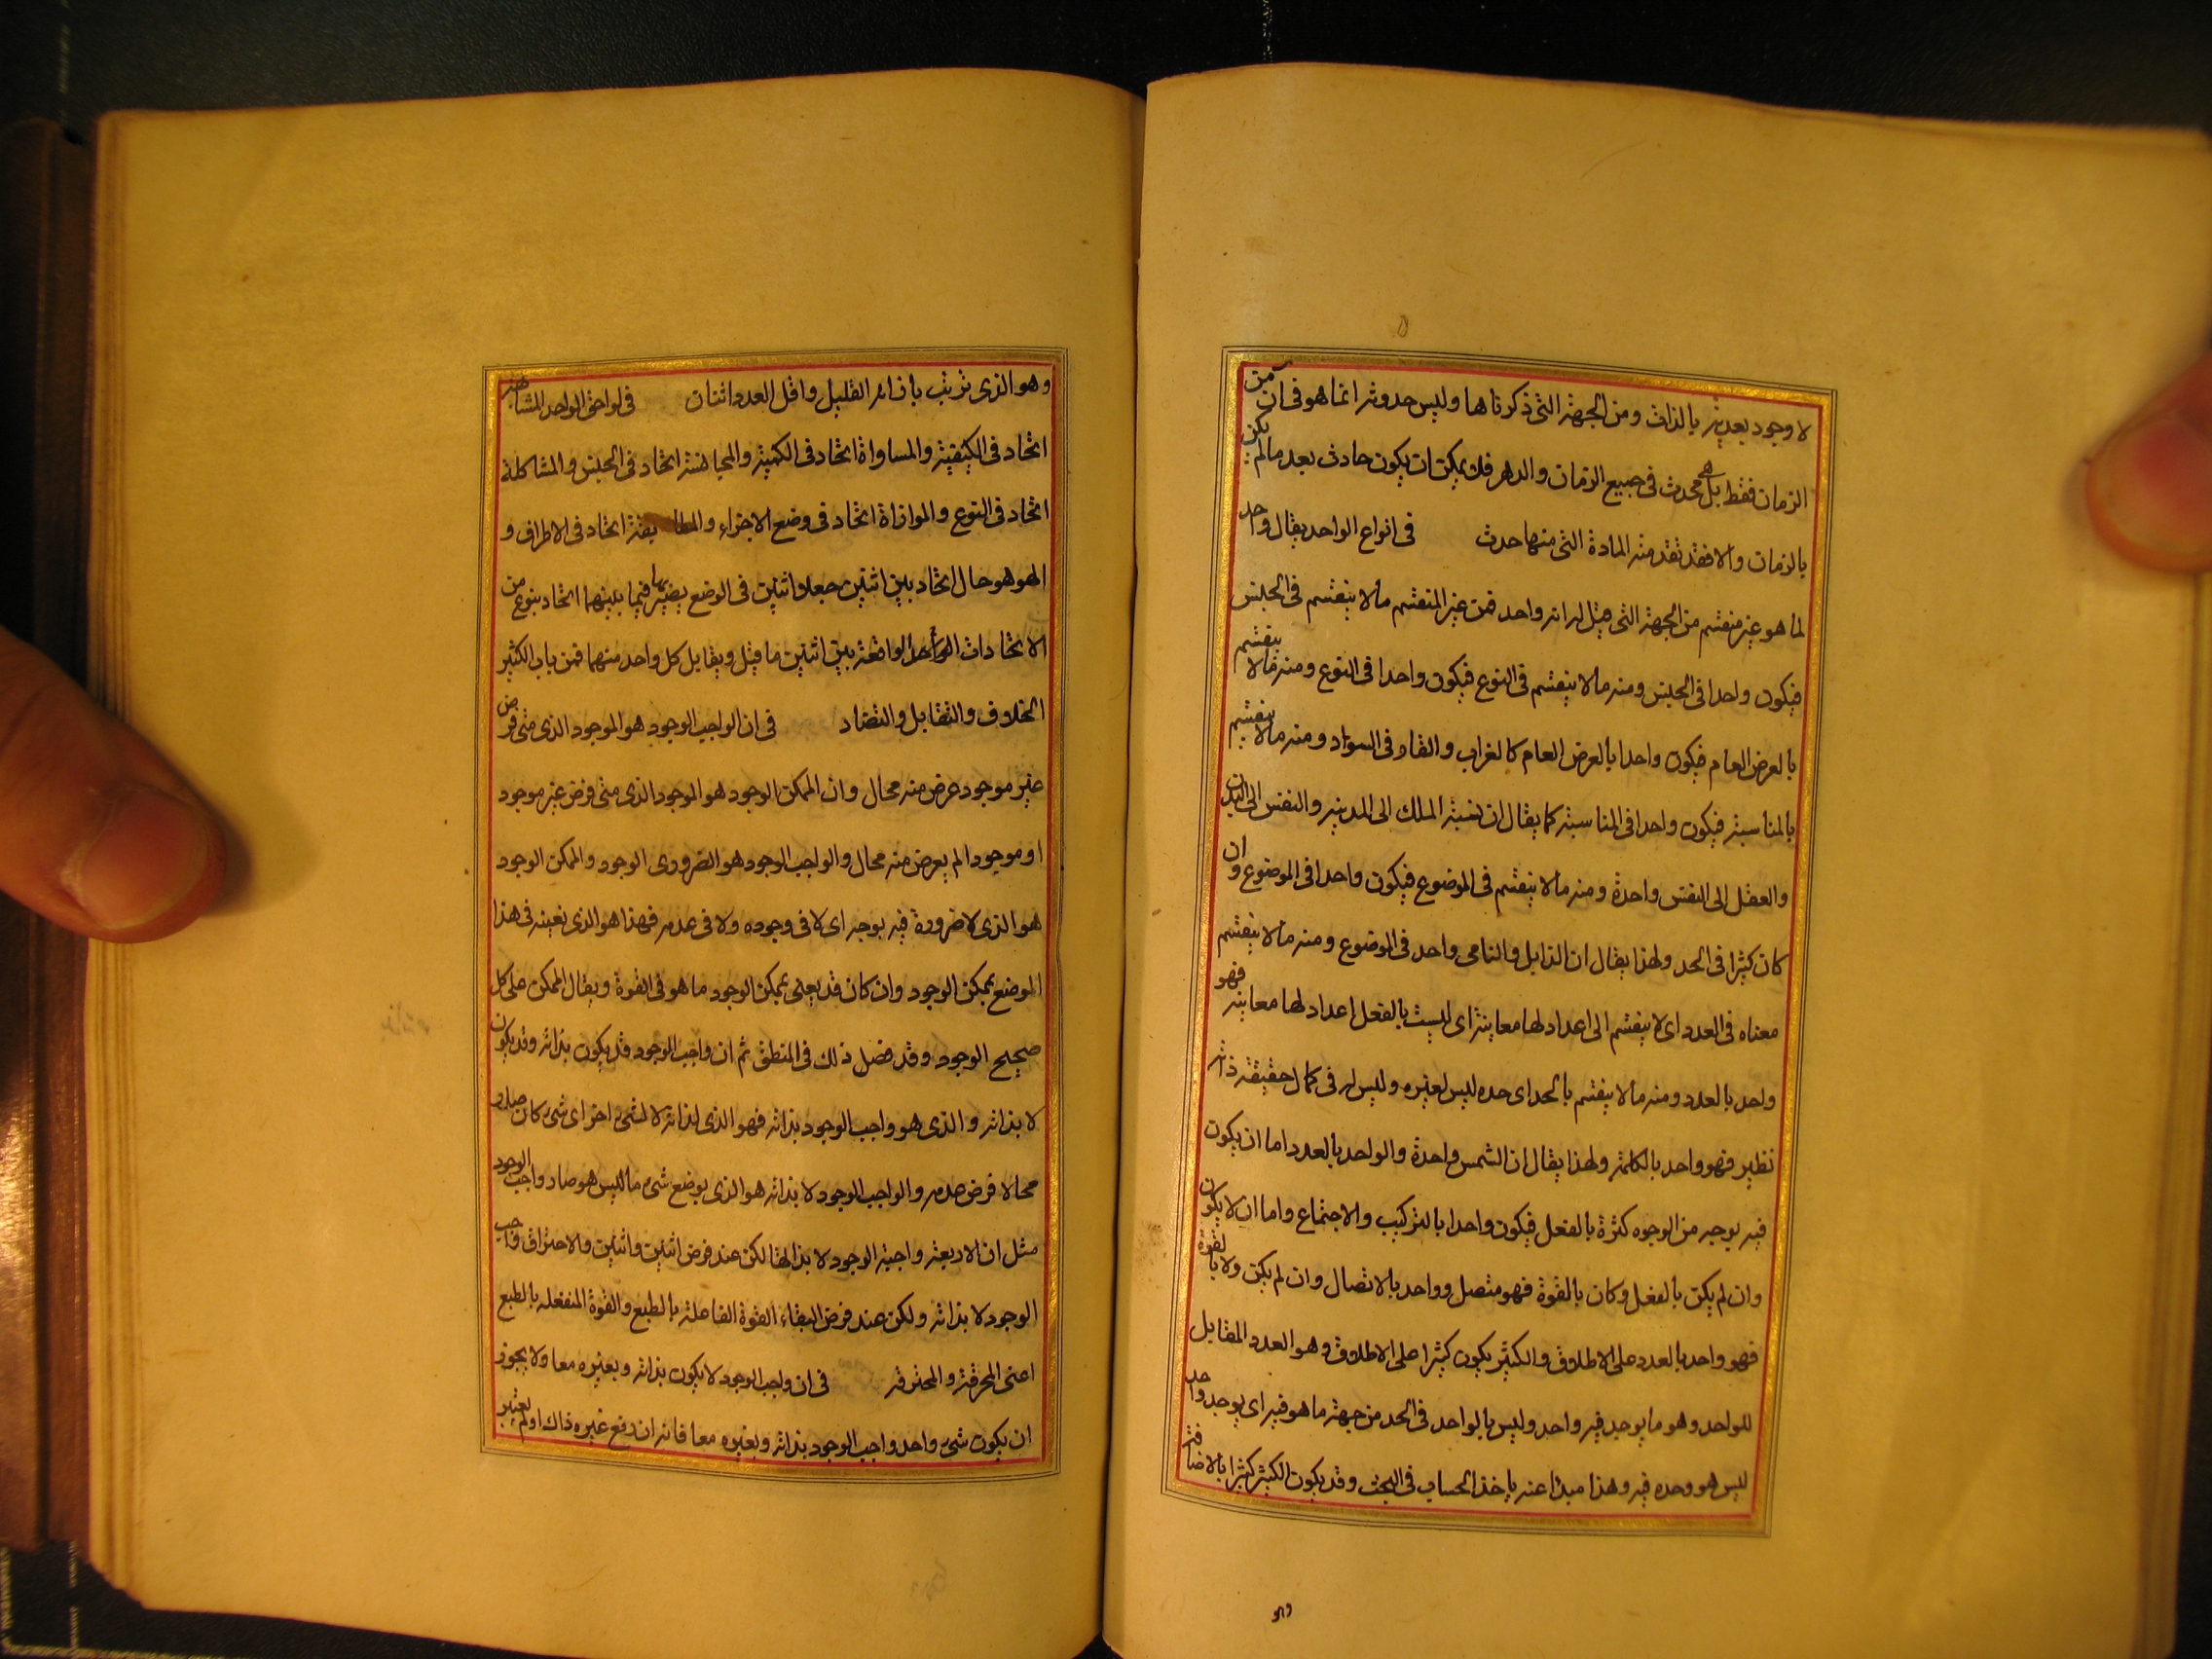 لا وجود بعدية بالذات ومن الجهة التى ذكرناها وليس حدوثه انما هو فى ان من
الزمان فقط بل هو محدث فى جميع الزمان والدهر فلا يمكن ان يكون حادث بعد ما لم يكن
بالزمان والا فقد تقدمته المادة التى منها حدث فى انواع الواحد يقال واحد
لما هو غير منقسم من الجهة التى قيل له انه واحد فمن غير المنقسم ما لا ينقسم فى الجنس
فيكون واحدا فى الجنس ومنه ما لا ينقسم فى النوع فيكون واحدا فى النوع ومنه ما لا ينقسم
بالعرض العام فيكون واحدا بالعرض العام كالغراب والقار فى السواد ومنه ما لا ينقسم
بالمناسبة فيكون واحدا فى المناسبة كما يقال ان نسبة الملك الى المدينة والنفس الى البدن
والعقل الى النفس واحدة ومنه ما لا ينقسم فى الموضوع فيكون واحدا فى الموضوع وان
كان كثيرا فى الحد ولهذا يقال ان الذابل والنامى واحد فى الموضوع ومنه ما لا ينقسم
معناه فى العدد اى لا ينقسم الى اعداد لها معاينة اى ليست بالفعل اعداد لها معاينة فهو
واحد بالعدد ومنه ما لا ينقسم بالحد اى حده ليس لغيره وليس له فى كمال حقيقة ذاته
نظير فهو واحد بالكلمة ولهذا يقال ان الشمس واحدة والواحد بالعدد اما ان يكون
فيه بوجه من الوجوه كثرة بالفعل فيكون واحدا بالتركيب والاجتماع واما ان لا يكون
وان لم يكن بالفعل وكان بالقوة فهو متصل وواحد بالاتصال وان لم يكن ولا بالقوة
فهو واحد بالعدد على الاطلاق والكثير يكون كثيرا على الاطلاق وهو العدد المقابل
للواحد وهو ما يوجد فيه واحد وليس بالواحد فى الحد من جهة ما هو فيه اى يوجد واحد
ليس هو وحده فيه وهذا مبدا عنه ياخذ الحساب فى البحث وقد يكون الكثير كثيرا بالاضافة
وهو
وهو الذى ترتب بازائه القليل واقل العدد اثنان فى لواحق الواحد المشابهة
اتحاد فى الكيفية والمساواة اتحاد فى الكمية والمجانسة اتحاد فى الجنس والمشاكلة
اتحاد فى النوع والموازاة اتحاد فى وضع الاجزاء والمطابقة اتحاد فى الاطراف و
الهو هو حال اتحاد بين اثنين جعلا اثنين فى الوضع يصير بها فيما بينهما اتحاد بنوع من
الاتحادات الواقعة بين اثنين ما قيل ويقابل كل واحد منهما فمن باب الكثير
الخلاف والتقابل والتضاد فى ان الواجب الوجود هو الموجود الذى متى فرض
غير موجود عرض منه محال وان الممكن الوجود هو الموجود الذى متى فرض غير موجود
او موجودا لم يعرض منه محال والواجب الوجود هو الضرورى الوجود والممكن الوجود
هو الذى لا ضرورة فيه بوجه اى لا فى وجوده ولا فى عدمه فهذا هو الذى نعينه فى هذا
الموضع بممكن الوجود وان كان قد يعنى بممكن الوجود ما هو فى القوة ويقال الممكن على كل
صحيح الوجود وقد فصل ذلك فى المنطق ثم ان واجب الوجود قد يكون بذاته وقد يكون
لا بذاته والذى هو واجب الوجود بذاته فهو الذى لذاته لا لشىء اخر اى شىء كان صار
محالا فرض عدمه والواجب الوجود لا بذاته هو الذى يوضع شىء ما ليس هو صار واجب الوجود
مثل ان الاربعة واجبة الوجود لا بذاتها لكن عند فرض اثنين واثنين والاحتراق واجب
الوجود لا بذاته ولكن عند فرض التقاء القوة الفاعلة بالطبع والقوة المنفعلة بالطبع
اعنى المحرقة والمحترقة فى ان واجب الوجود لا يكون بذاته وبغيره معا ولا يجوز
ان يكون شىء واحد واجب الوجود بذاته وبغيره معا فانه ان رفع غيره ذاك او لم يعتبر